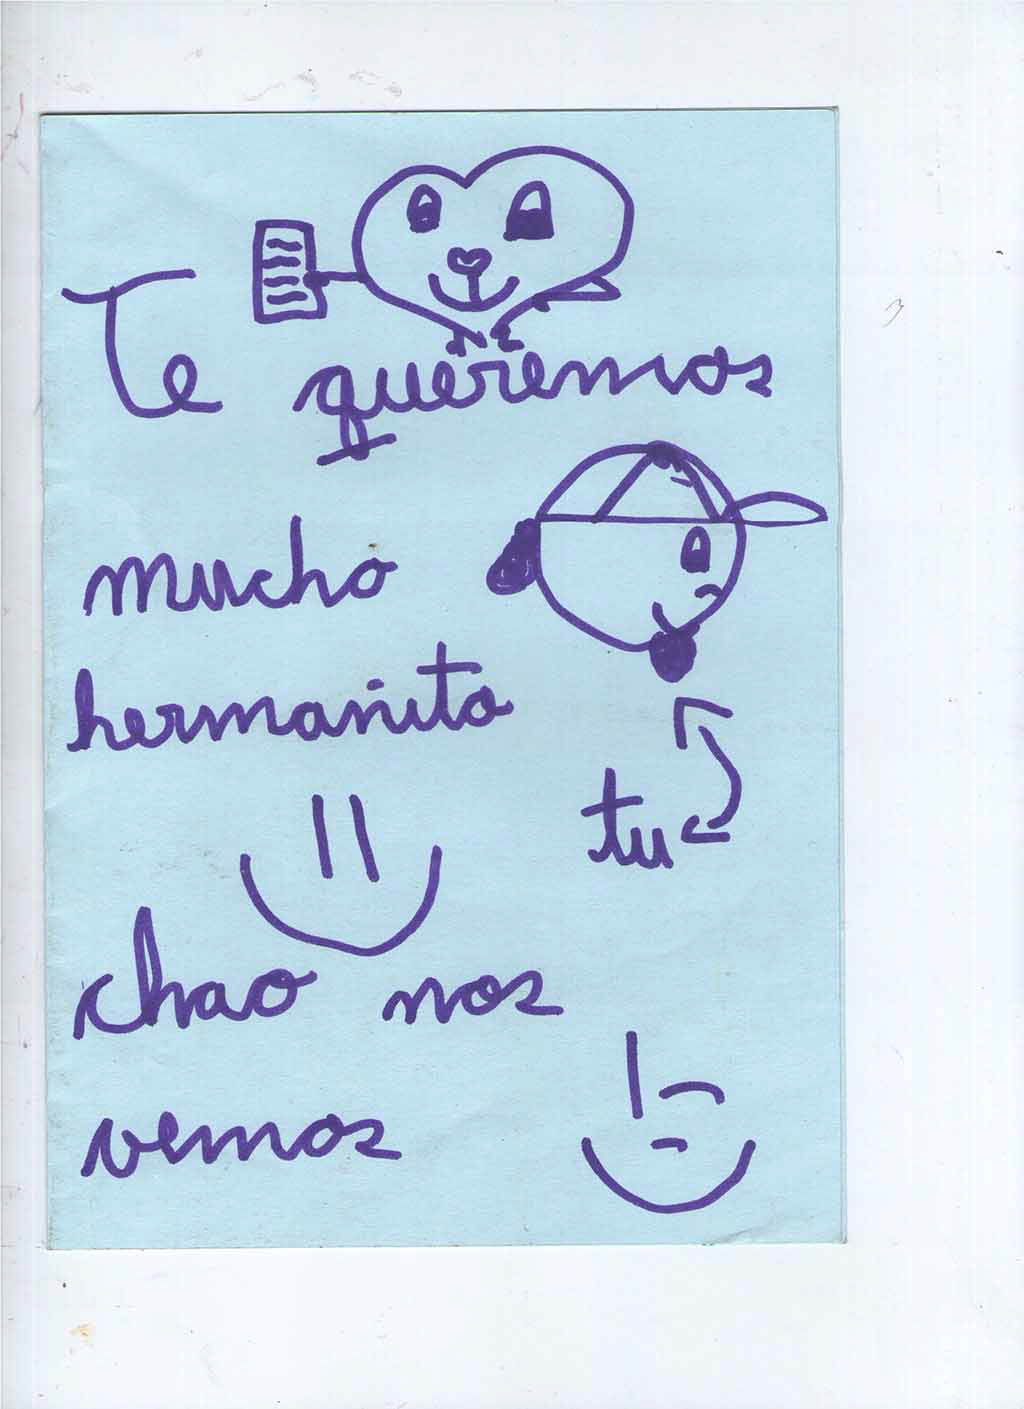 Te queremos
mucho
hermanito
tu
chao nos
vemos